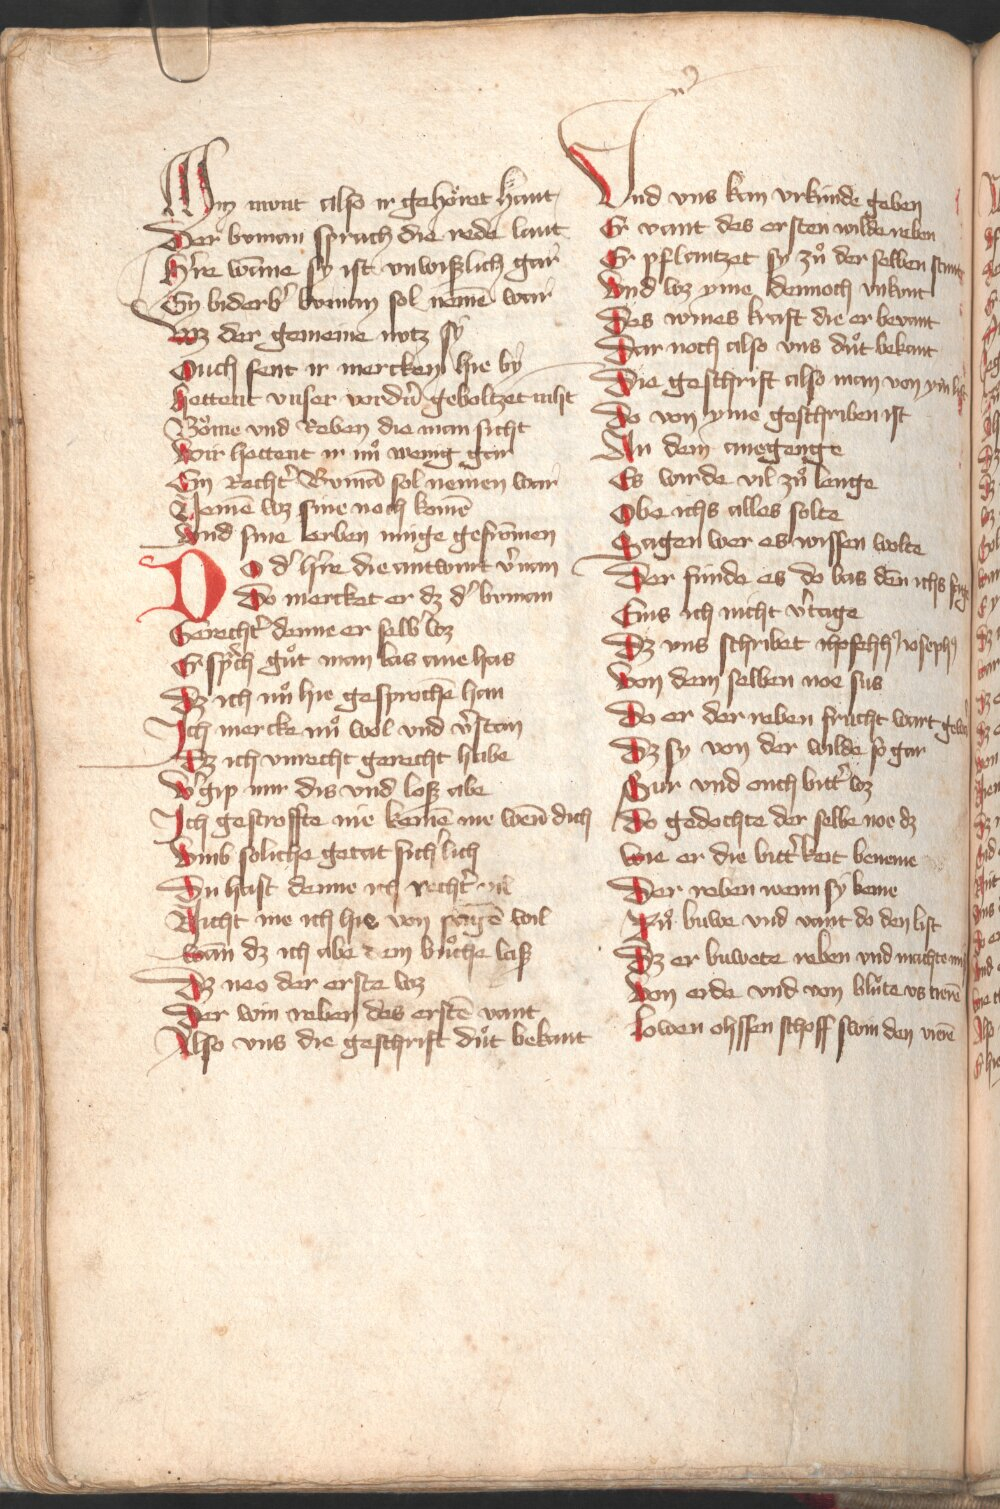 Min mout also ir gehöret hant
Der buman sprach die rede laut
H're wāme sy ist vnwißlich gar
Ein biderb' buman sol nemē war
Wz der gemeine nutz sy
Ouch sent ir mercken hie by
Hettent vnser vordn̄ geboltzet niht
Böme vnd Reben die man sicht
Wir hettent ir nů wenig gar
Ein Recht' Bumā sol nemen war
Nemē wz sine noch komē
Vnd sine erben muge gefromen
Do d' h're die antwurt v'nam
Do mercket er dz d' buman
Gerecht' denne er selb wz
Er sp'ch gůt man las ane has
Dz ich nů hie gesprochē han
Ich mercke nů wol vnd v'stan
Dz ich vnrecht gerecht habe
V'gip mir dis vnd loß abe
Ich gestroffte nie keinē me wēn dich
Vmb soliche getat sich'lich
Du hast denne ich recht' vil
Nicht me ich hie von sagē wil
Wan dz ich abe dem bůche laß
Dz neo der erste wz
Der win reben des erstē vant
Also vns die geschrift důt bekant
Vnd vns kan vrkunde geben
Er vant des ersten wilde reben
Er pflantzet sy zů der selben stunt
Vnd wz yme dennoch vnkunt
Des wines kraft die er bevant
Dar noch also vns důt bekant
Die geschrift also man von ym list
Do von yme geschriben ist
An dem anegenge
Es wurde vil zů lenge
Obe ichs alles solte
Sagen wer es wissen wolte
Der funde es do bas den ichs sage
Eins ich nicht v'tage
Dz vns schribet josephus
Von dem selben noe sus
Do er der reben frucht wart gewar
Dz sy von der wilde so gar
Sur vnd ouch bitt' wz
Do gedochte der selbe noe dz
Wie er die bitt'keit beneme
Der reben wenn sy keme
Zů buwe vnd vant do den list
Dz er buwete reben vnd machte mist
Von erde vnd von blůte vs tierē
Lowen ohssen schoff swin den vierē